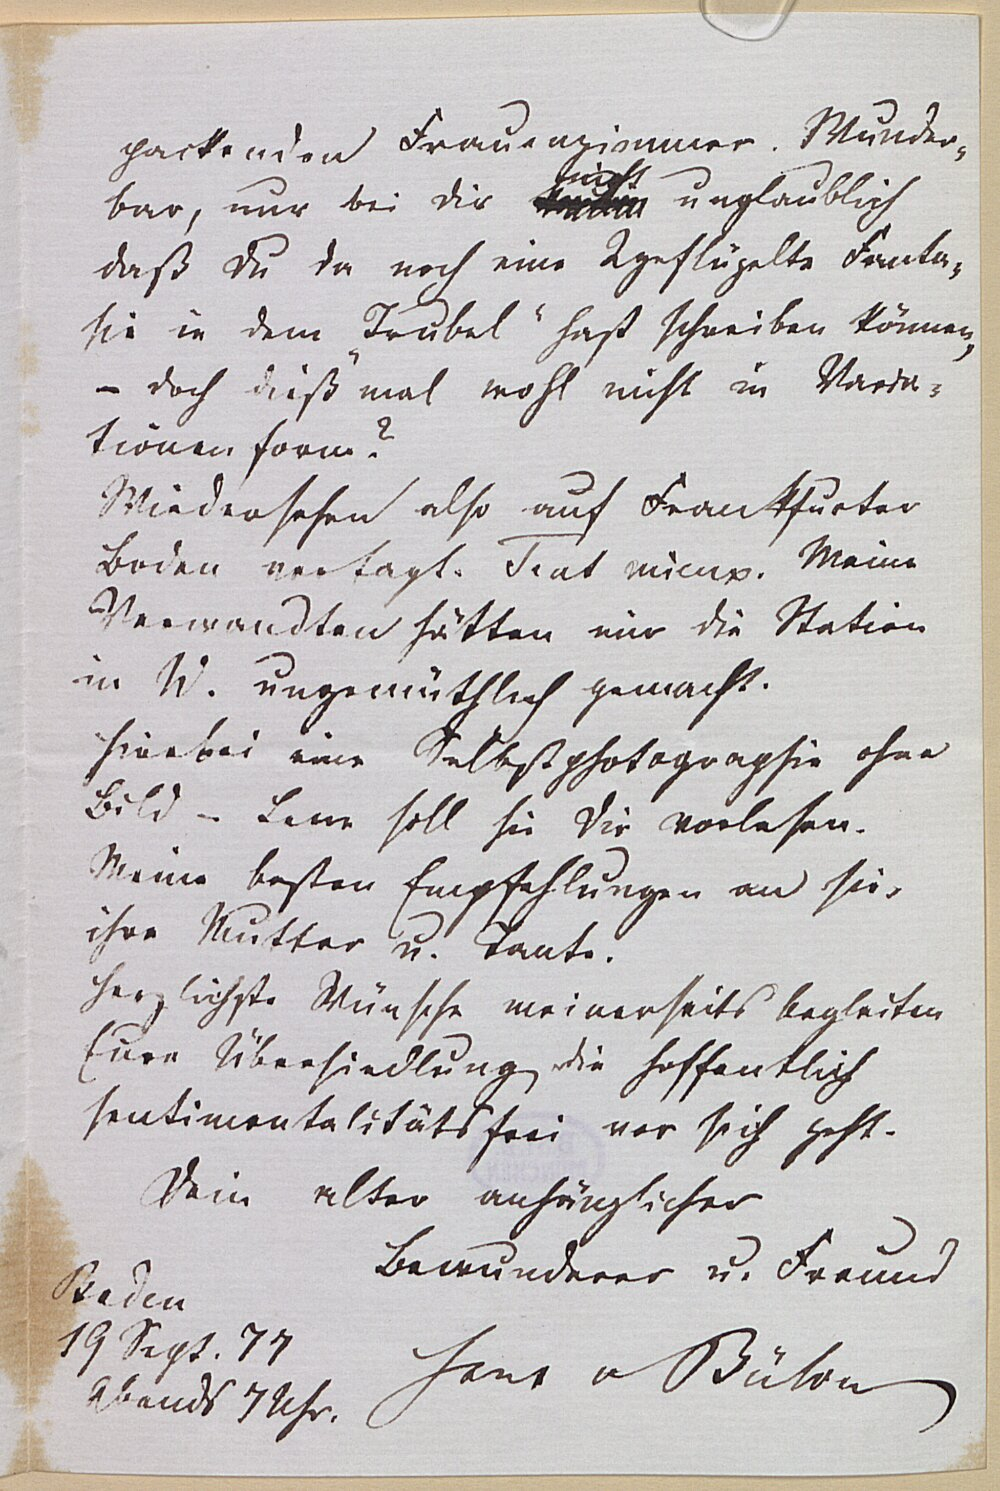 packenden Frauenzimmer. Wunder-
bar, nur bei dir nicht unglaublich
daß Du da noch eine 2geflügelte Fanta-
sie in dem „Trubel“ hast schreiben können,
– doch dieß mal wohl nicht in Varia-
tionenform?
Wiedersehen also auf Frankfurter
Boden vertagt. Fiat . Meine
Verwandten hätten mir die Station
in W. ungemüthlich gemacht.
Hierbei eine Selbstphotographie ohne
Bild – Lene soll sie Dir vorlesen.
Meine besten Empfehlungen an sie,
ihre Mutter u. Tante.
Herzlichste Wünsche meinerseits begleiten
Eure Übersiedlung, die hoffentlich
sentimentalitätsfrei vor sich geht.
Dein alter anhänglicher
Bewunderer u. Freund
Baden
19 Sept. 77
Abends 7 Uhr.
Hans v Bülow